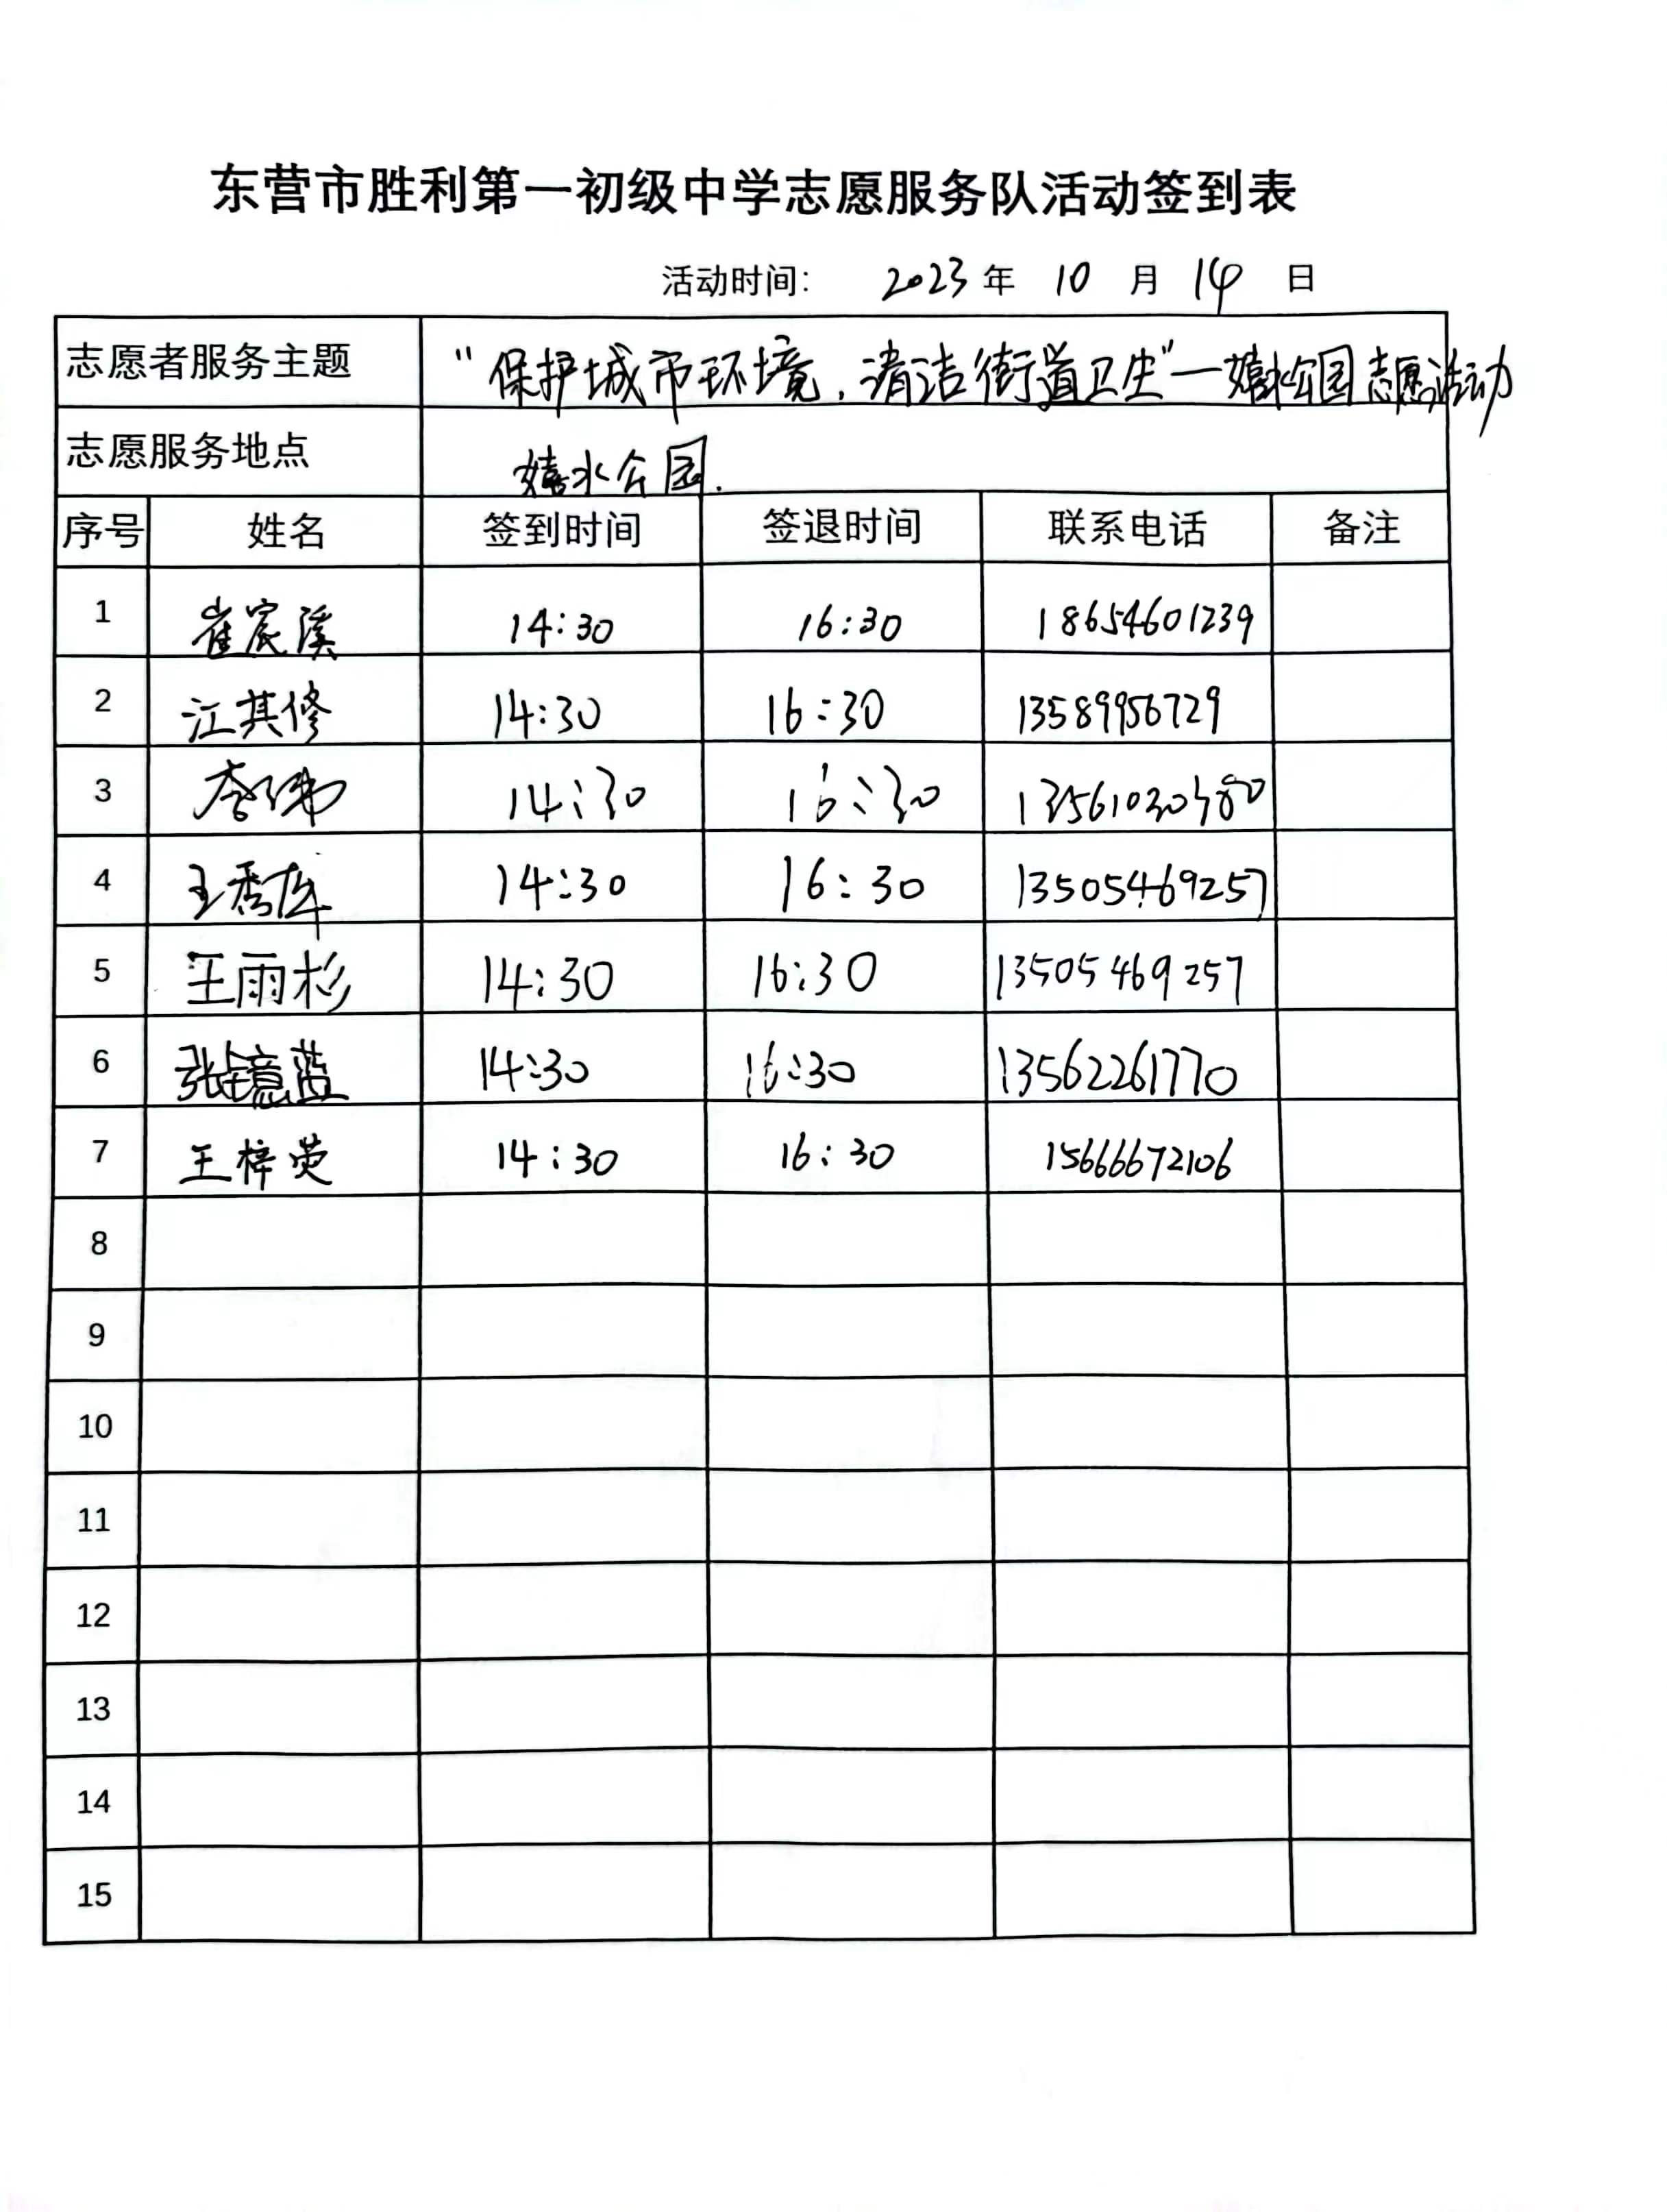 东营市胜利第一初级中学志愿服务队活动签到表
活动时间： 2023 年 10 月 14 日
志愿者服务主题 “保护城市环境，清洁街道卫生”—嬉水公园志愿活动
志愿服务地点 嬉水公园.
序号 姓名 签到时间 签退时间 联系电话 备注
1 崔宸溪 14:30 16:30 18654601239
2 江其修 14:30 16:30 13589956729
3 李伟 14:30 16:30 13561030480
4 王秀库 14:30 16:30 13505469257
5 王雨杉 14:30 16:30 13505469257
6 张镱蓝 14:30 16:30 13562261770
7 王梓荧 14:30 16:30 15666672106
8
9
10
11
12
13
14
15